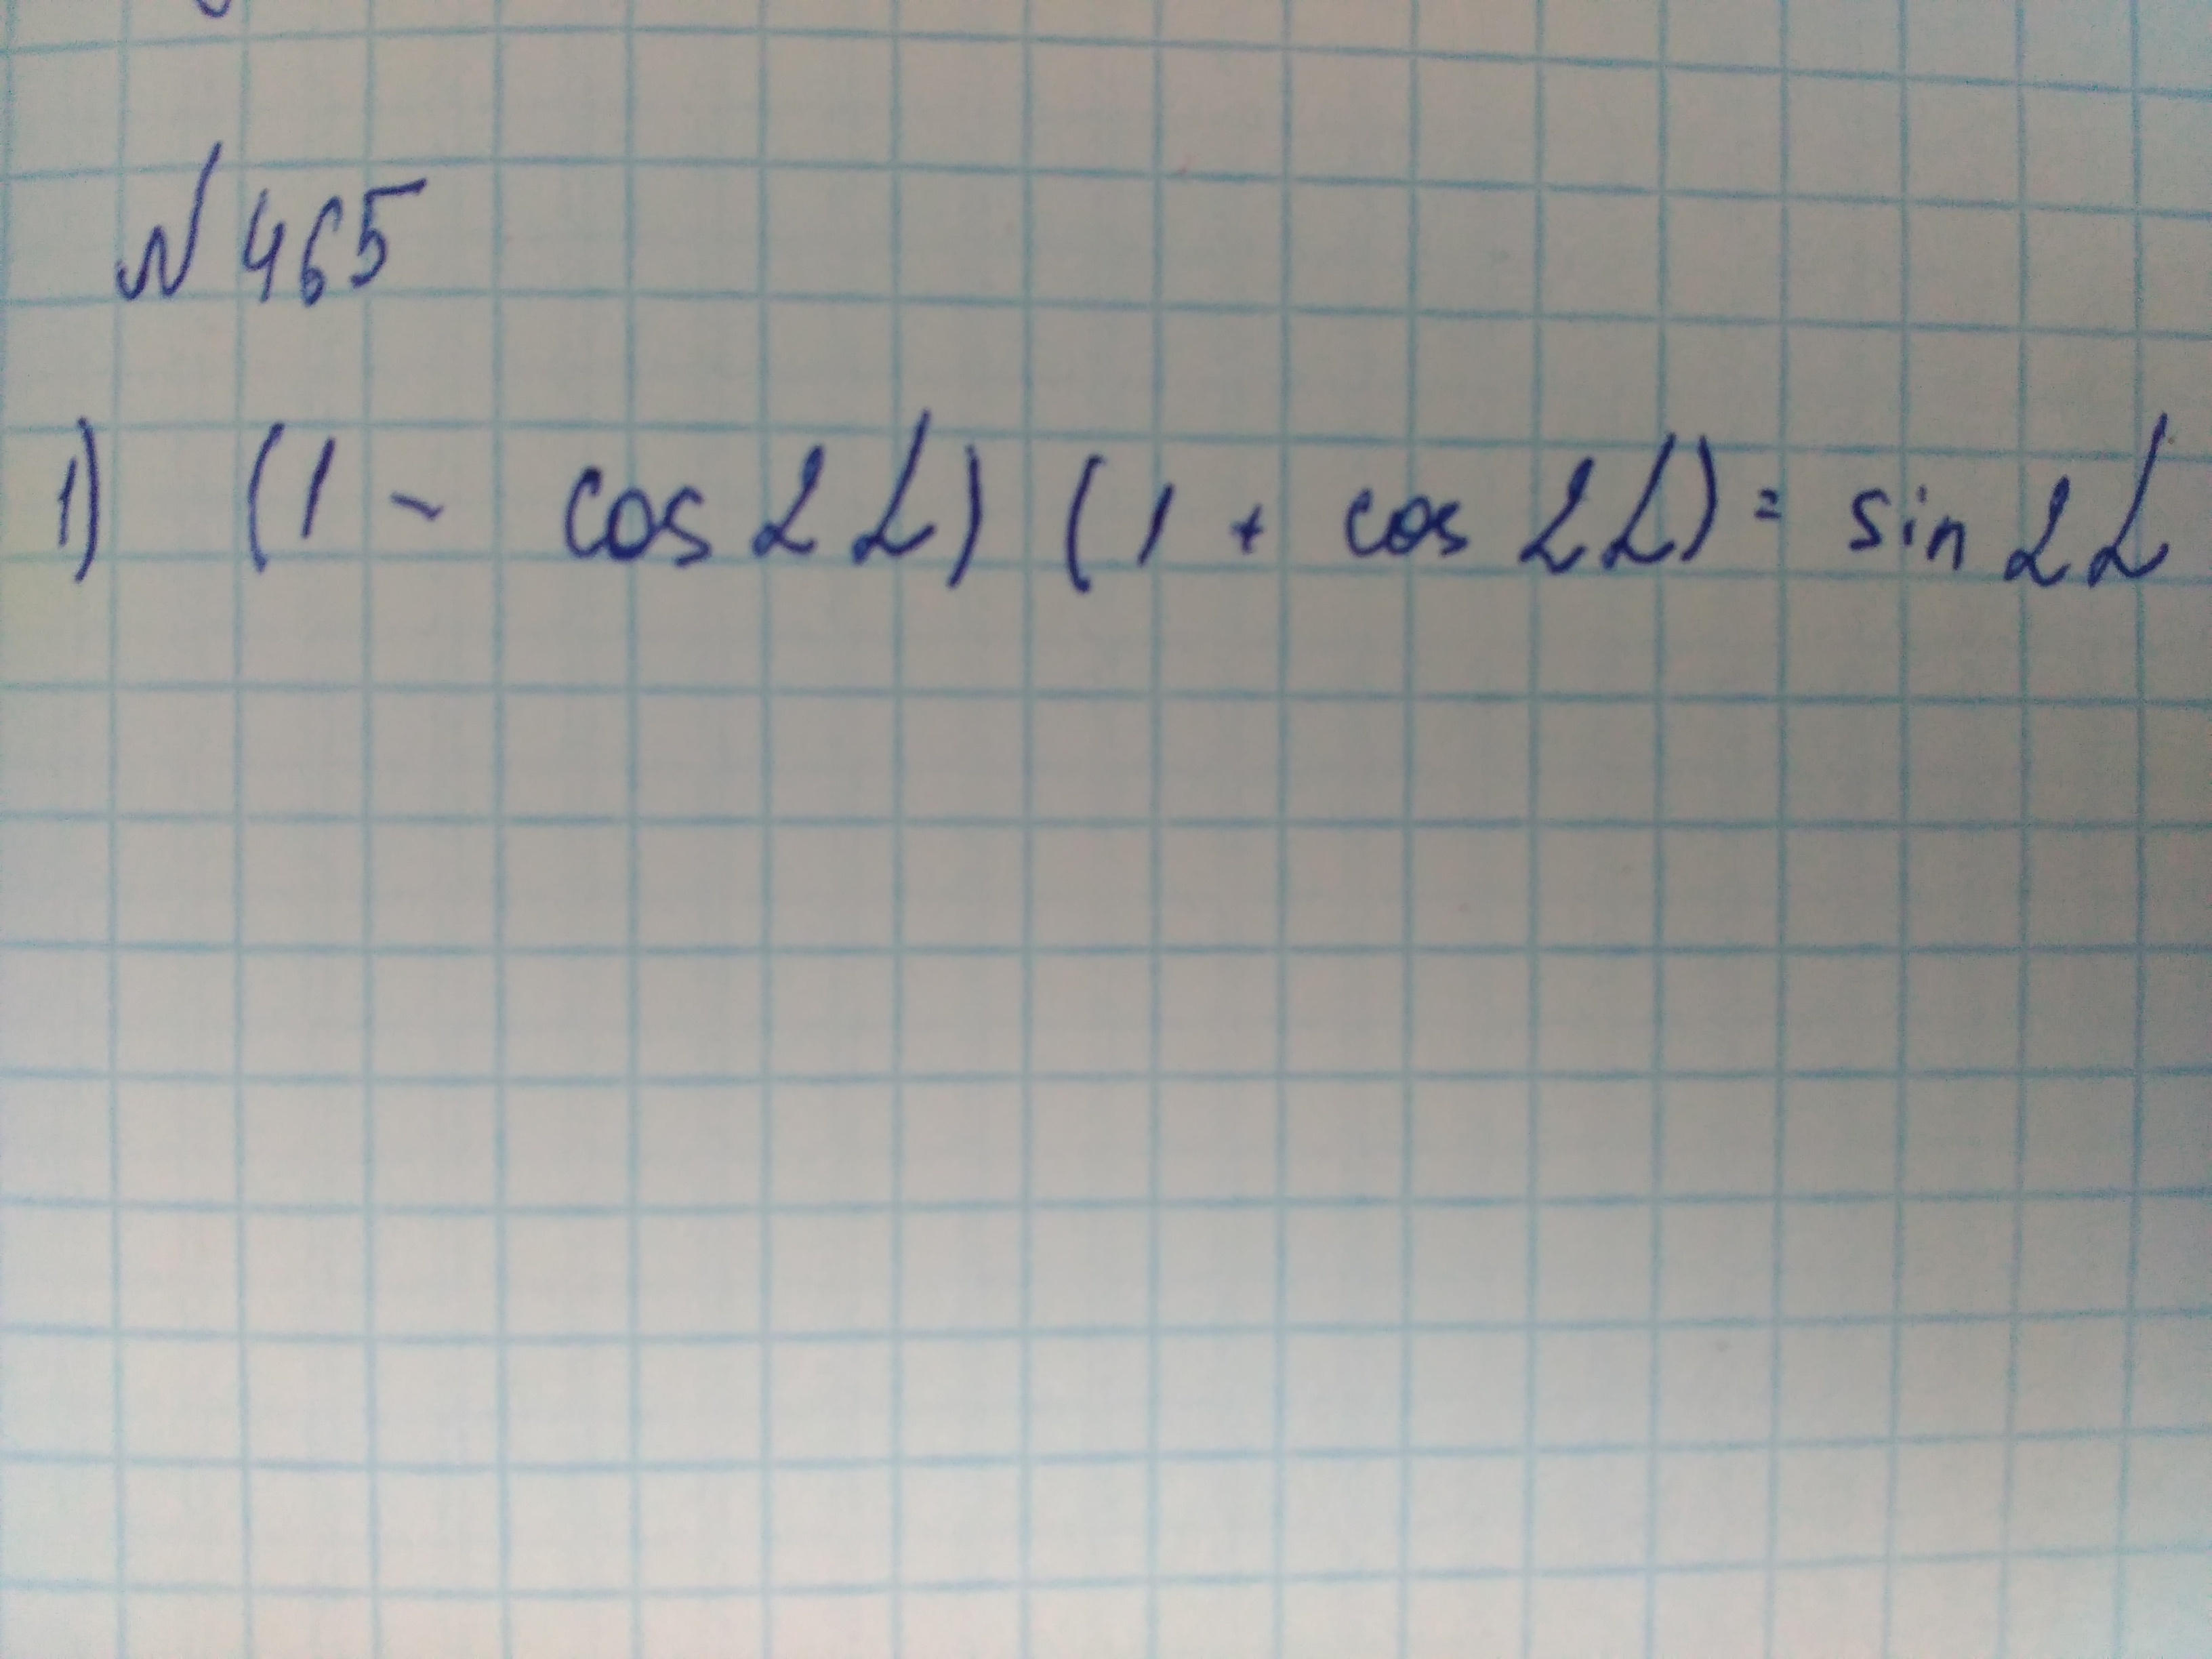 № 465
1) (1 - cos 2α) (1 + cos 2α) = sin 2α